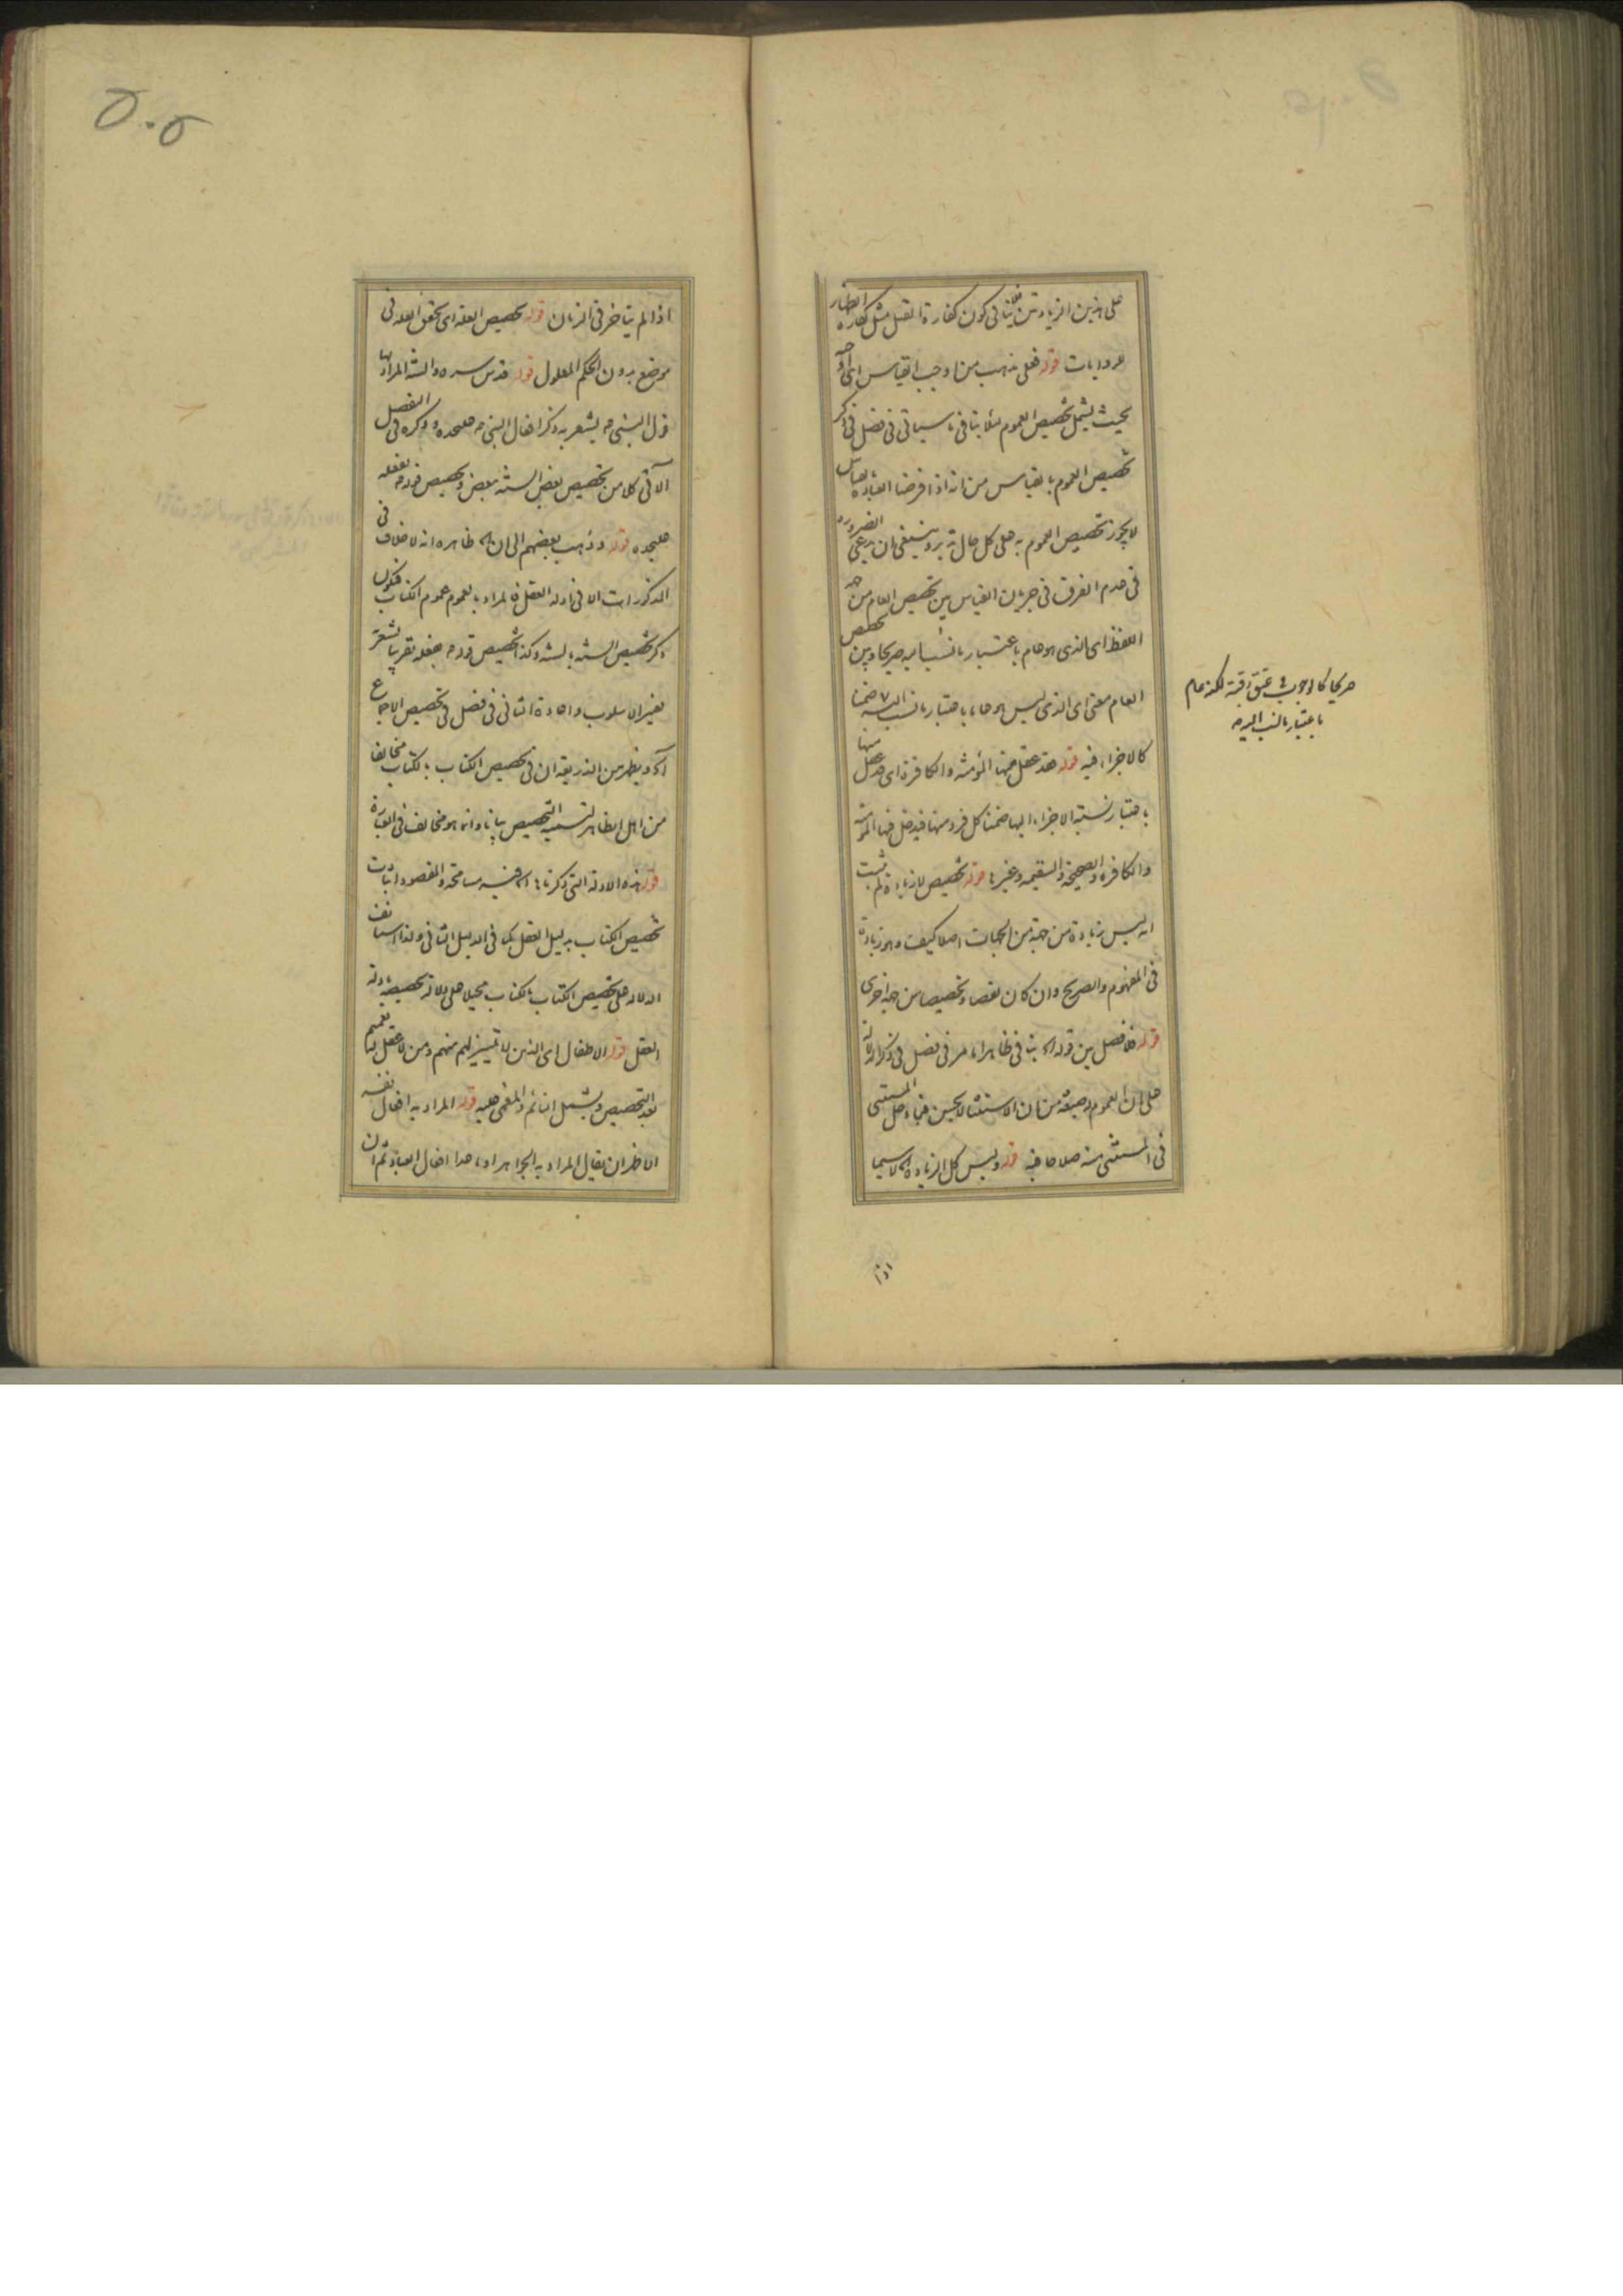 على هذين الزيادتين فلا ينافى كون كفارة القتل مثل كفارة الظهار
للروايات قوله فعلى مذهب من اوجب القياس اى آه
بحيث يشمل تخصيص العموم فلا ينافى ما سياتى فى فصل فى ذكر
تخصيص العموم بالقياس من انه اذا فرضنا العبادة بقياس
لا يجوز تخصيص العموم به على كل حال تدبر وينبغى ان يدعى الضرورة
فى عدم الفرق فى جريان القياس بين تخصيص العام من جهة
اللفظ اى الذى هو عام باعتبار ما نسب اليه صريحا وبين تخصيص
العام معنى اى الذى ليس هو عاما باعتبار ما نسب اليه الا ضمنا
كالاجزاء فيه قوله فقد عقل منها المؤمنة والكافرة اى عقل منها
باعتبار نسبة الاجزاء اليها ضمنا كل فرد منها فيدخل فيها المؤمنة
والكافرة والصحيحة والسقيمة وغيرها قوله تخصيص لا زيادة لم يثبت
انه ليس زيادة من جهة من الجهات اصلا كيف وهو زيادة
فى المفهوم والصريح وان كان نقصا وتخصيصا من جهة اخرى
قوله فلا فصل بين قوله اه ينافى ظاهرا ما مر فى فصل فى ذكر الدلالة
على ان العموم له صيغة من ان الاستثناء لا يحسن فيما دخل المستثنى
فى المستثنى منه صلاحا فيه قوله وليس كل الزيادة اه لا سيما
اذا
صريحا كالوجوب فى عتق رقبة لكنه عام
باعتبار ما نسب اليه مر
۵۰۵
اذا لم يتاخر فى الزمان قوله تخصيص العلة اى تحقق العلة فى
موضع بدون الحكم المعلول قوله قدس سره والسنة المراد بها
قول النبى ص يشعر به ذكر افعال النبى ص علىحده وذكره فى الفصل
الآتى كلا من تخصيص بعض السنة ببعض وتخصيص قوله ص بفعله
علىحده قوله وذهب بعضهم الى ان اه ظاهره انه لا خلاف فى
المذكورات الا فى ادلة العقل فالمراد بالعموم عموم الكتاب فيكون
ذكر تخصيص السنة بالسنة وكذا تخصيص قوله ص بفعله تقريبا يشعر
تغيير الاسلوب واعادة الثانى فى فصل فى تخصيص الاجماع
اه ويظهر من الذريعة ان فى تخصيص الكتاب بالكتاب مخالفا
من اهل الظاهر لتسمية التخصيص بيانا وانما هو مخالف فى العبارة
قوله هذه الادلة التى ذكرناها اه فيه مسامحة والمقصود اثبات
تخصيص الكتاب بدليل العقل كما فى الدليل الثانى ولذا استانف
الدلالة على تخصيص الكتاب بالكتاب محيلا على دلالة تخصيصه بادلة
العقل قوله الاطفال اى الذين لا تمييز لهم منهم ومن لا عقل له تعميم
بعد التخصيص ويشمل النائم والمغمى عليه قوله المراد به افعال نفسه
الاظهر ان يقال المراد به الجواهر او ما عدا افعال العباد ثم ان